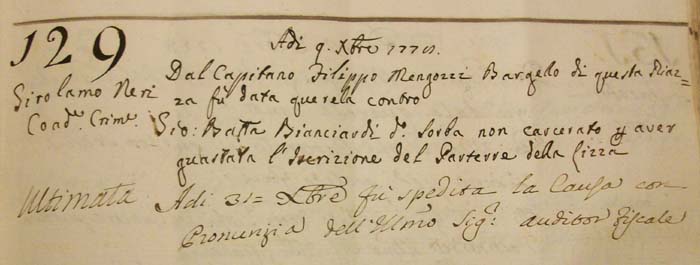 129
Adi 9. Xbre 177
Girolamo Neri
Coad.e Crim.e
Dal Capitano Filippo Mengozzi Bargello di questa Piaz=
za fù data querela contro
Gio: Batta Bianciardi d.o Sorba non carcerato p aver
guastata l'Iscrizione del Parterre della Lizza
Ultimata
Adi 31= Xbre fù spedita la Causa con
Pronunzia dell'Illmo Sig.r auditor fiscale